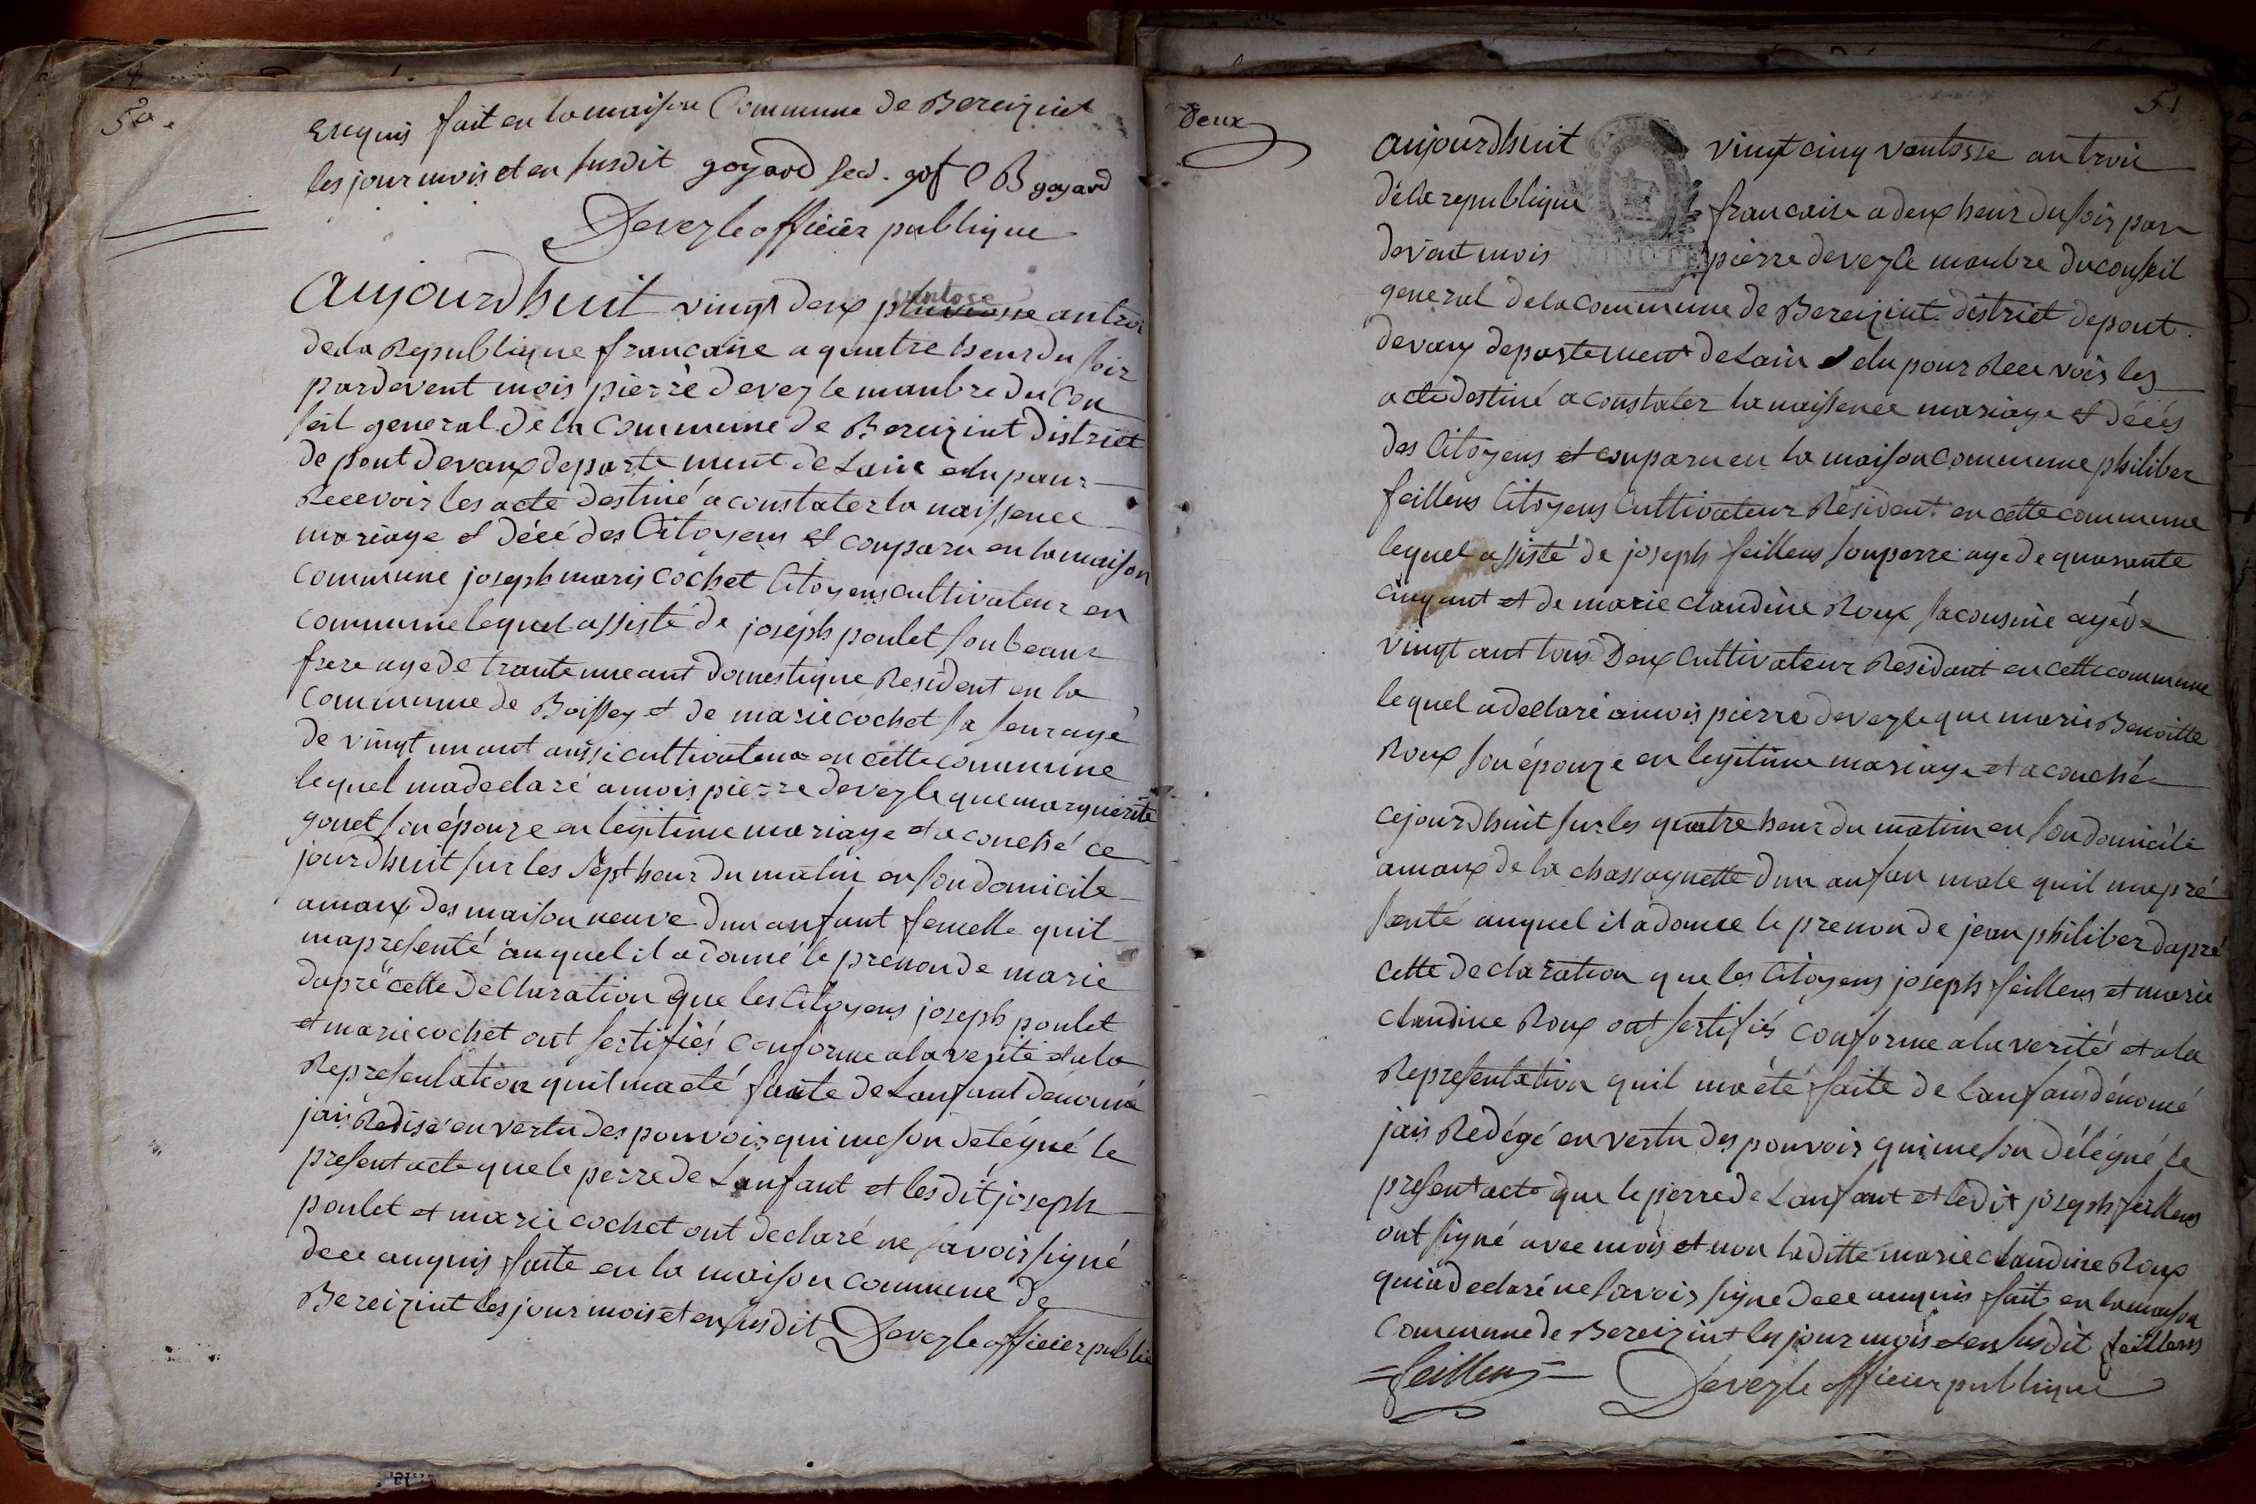 50.
Erequis fait en la maison Commune de Bereiziat
les jour mois et en susdit goyard sed. gof C B goyard
Deveyle officier publique
Aujourdhuit vingt deux pluviosse ventose an troi
de la Republique francaise a quatre heur du soir
pardevent mois pierre deveyle manbre du Con
seil general de la Commune de Bereiziat district
de pont devaux departement de Lain elu pour
Recevoir les acte destiné a constater la naissence
mariage et décé des Citoyens et conparu en la maison
commune joseph marie cochet Citoyens cultivateur en
commune lequel assisté de joseph poulet son beau
frere age de trante une ant domestique Resident en la
commune de Boissey et de marie cochet sa seur agé
de vingt un ant aussi cultivateur en cette commune
lequel ma declaré a mois pierre deveyle que marguerite
gonet son épouze en legitime mariage et a couché ce
jourdhuit sur les sept heur du matin en son domicile
amaux des maison neuve dun anfant femelle quil
ma presenté auquel il a donné le prenon de marie
dapré cette declaration que les Citoyens joseph poulet
et marie cochet ont sertifiés conforme a la verité et a la
Representation quil ma eté faite de Lanfant dénomé
jais Redisé en vertu des pouvois qui me son délégué le
present acte que le perre de Lanfant et les dit joseph
poulet et marie cochet ont declaré ne savois signé
dece anquis faite en la maison commune de
Bereiziat les jour mois et en susdit Deveyle officier public
51
deux
aujourdhuit vingt cinq vantosse an troi
de la republique francaise a deux heur du soir par
devant mois pierre deveyle manbre du conseil
general de la commune de Bereiziat district de pont
devaux departement de Lain elu pour Recevois les
acte destiné a constater la naissence mariage et décés
des Citoyens et conparu en la maison commune philiber
feillens Citoyens Cultivateur Resident en cette commune
lequel assisté de joseph feillens son perre age de quarante
cinq ant et de marie claudine Roux sa cousine agé de
vingt ant tous Deux Cultivateur Residant en cette commune
lequel a declaré a mois pierre deveyle que marie Benoitte
Roux son épouze en legitime mariage et a couché
cejourdhuit sur les quatre heur du matin en son domicile
amaux de la chassagnette dun anfan male quil ma pré
senté auquel il a donne le prenon de jean philiber dapré
cette declaration que les Citoyens joseph feillens et marie
claudine Roux ont sertifiés conforme a la verité et a la
Representation quil ma été faite de Lanfans dénomé
jais Redégé en vertu des pouvois qui me son délégué le
present acte que le pierre de Lanfant et ledit joseph feillens
ont signé avec mois et non laditte marie claudine Roux
qui a declaré ne savois signé dece anquis fait en la maison
commune de Bereiziat les jour mois et en susdit feillens
feillens Deveyle officier publique